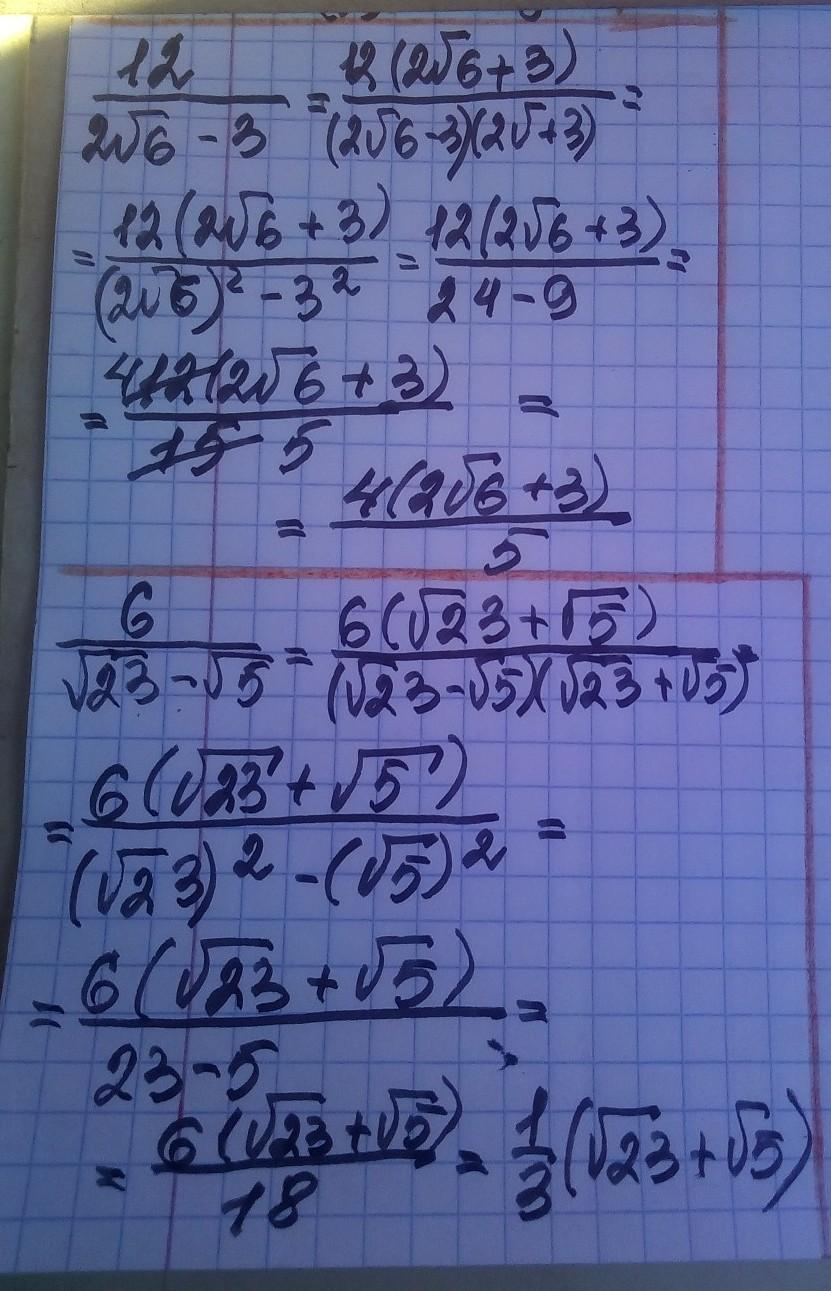 12/(2√6 - 3) = 12(2√6 + 3)/((2√6 - 3)(2√ + 3)) =
= 12(2√6 + 3)/((2√6)² - 3²) = 12(2√6 + 3)/(24 - 9) =
= 4 12(2√6 + 3)/(15 5) =
= 4(2√6 + 3)/5
6/(√23 - √5) = 6(√23 + √5)/((√23 - √5)(√23 + √5)) =
= 6(√23 + √5)/((√23)² - (√5)²) =
= 6(√23 + √5)/(23 - 5) =
= 6(√23 + √5)/18 = 1/3(√23 + √5)